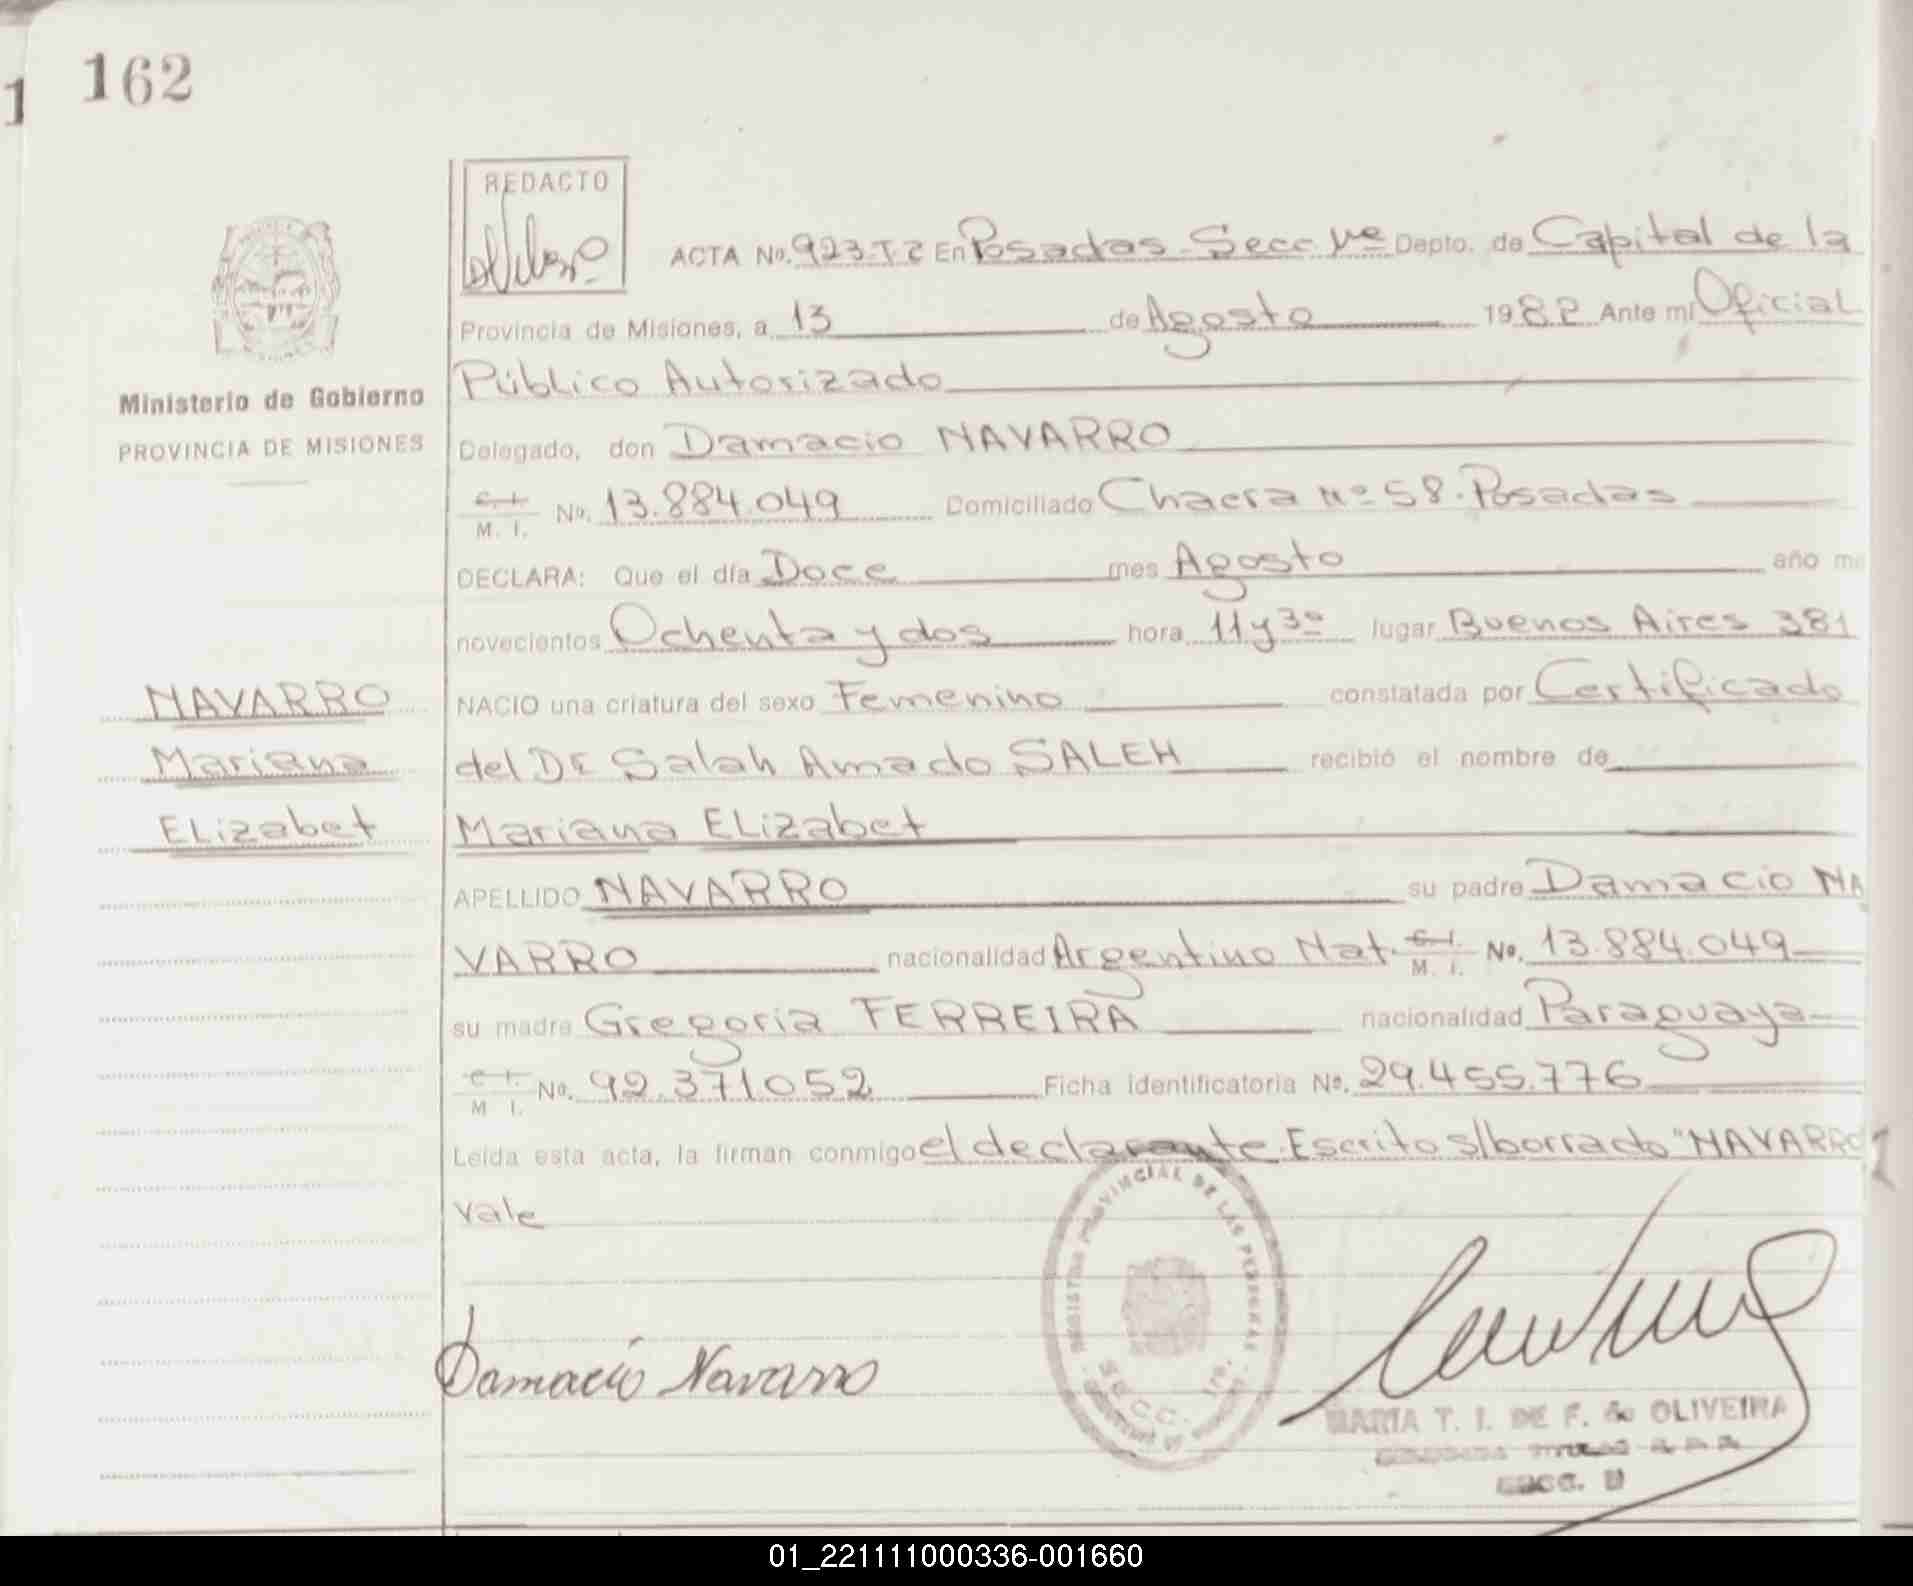 162
REDACTO
ACTA No. 923-T2 En Posadas-Secc 1ra Depto. de Capital de la
Provincia de Misiones, a 13 de Agosto 1982 Ante mí Oficial
Público Autorizado
Ministerio de Gobierno
PROVINCIA DE MISIONES
Delegado, don Damacio NAVARRO
C. I. M. I. No. 13.884.049 Domiciliado Chacra Nº 58. Posadas
DECLARA: Que el día Doce mes Agosto año mi
novecientos Ochenta y dos hora 11 y 30 lugar Buenos Aires 381
NAVARRO
Mariana
Elizabet
NACIO una criatura del sexo Femenino constatada por Certificado
del Dr Salah Amado SALEH recibió el nombre de
Mariana Elizabet
APELLIDO NAVARRO su padre Damacio NA
VARRO nacionalidad Argentino Nat. C. I. M. I. No. 13.884.049
su madre Gregoria FERREIRA nacionalidad Paraguaya
C. I. M I. No. 92.371052 Ficha identificatoria No. 29.455.776
Leída esta acta, la firman conmigo el declarante. Escrito s/borrado "NAVARRO
Vale
REGISTRO PROVINCIAL DE LAS PERSONAS
SECC. 1ra.
Damacio Navarro
MARIA T. I. DE F. de OLIVEIRA
01_221111000336-001660